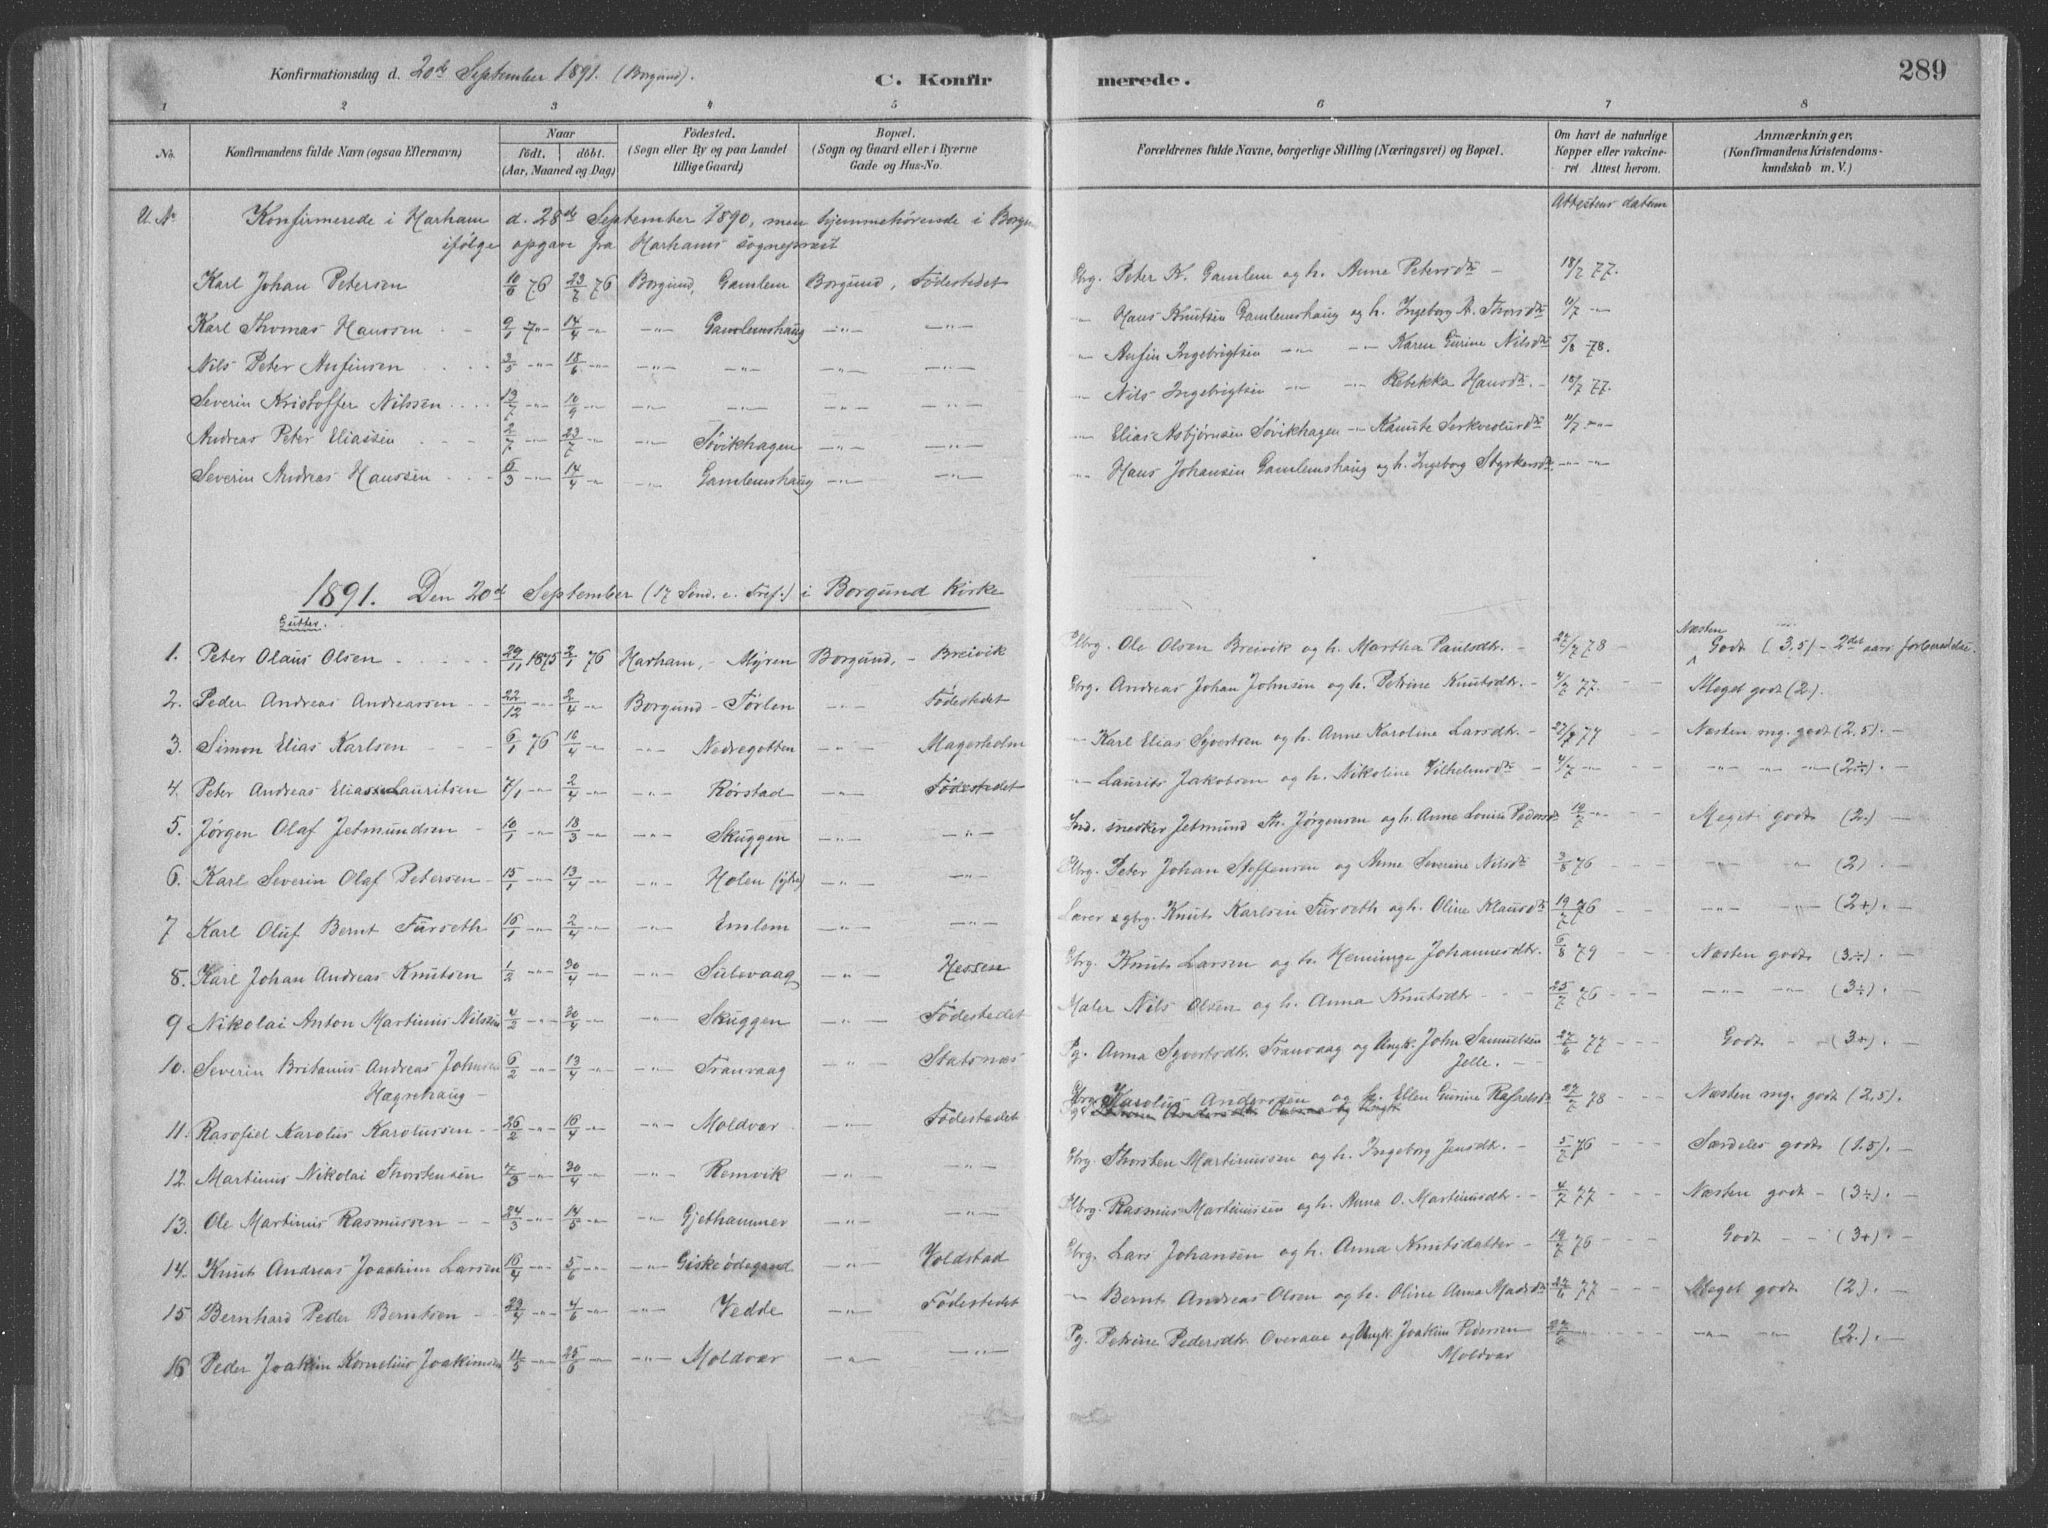 Konfirmationsdag d. 20de September 1891. (Borgund). C. Konfirmerede. 289
1 2 3 4 5 6 7 8
No. Konfirmandens fulde Navn (ogsaa Efternavn) Naar födt, döbt. (Aar, Maaned og Dag) Födested. (Sogn eller By og paa Landet tillige Gaard) Bopæl. (Sogn og Gaard eller i Byerne Gade og Hus-No. Forældrenes fulde Navne, borgerlige Stilling (Næringsvei) og Bopæl. Om havt de naturlige Kopper eller vakcineret Attest herom. Anmærkninger, (Konfirmandens Kristendomskundskab m. V.)
U. Nr Konfirmerede i Harham d. 28de September 1890, men hjemmehörende i Borgund Attestens datum
ifölge opgave fra Harhams sognepræst
Karl Johan Petersen 10/6 76 23/7 76 Borgund, Gamlem Borgund, Födestedet Gbrg. Peter K. Gamlem og h. Anne Petersdtr – 18/7 77.
Karl Thomas Hanssen 9/1 7 -"- 14/4 -"- -"- Gamlemshaug -"- -"- -"- Hans Knutsen Gamlemshaug og h. Ingeborg A. Thorsdtr 11/7 -"-
Nils Peter Anfinsen 3/5 -"- 18/6 -"- -"- -"- -"- -"- -"- Anfin Ingebrigtsen -"- -"- Karen Gurine Nilsdtr 5/8 78.
Severin Kristoffer Nilssen 13/7 -"- 10/9 -"- -"- -"- -"- -"- -"- Nils Ingebrigtsen -"- -"- Rebekka Hansdtr. – 18/7 77.
Andreas Peter Eliassen 2/7 -"- 23/7 -"- -"- Sövikhagen -"- -"- -"- Elias Asbjørnsen Sövikhagen -"- 11/7 -"-
Severin Andreas Hanssen 6/3 -"- 14/4 -"- -"- Gamlemshaug -"- -"- -"- Hans Johansen Gamlemshaug og h. Ingeborg Styrkersdtr -"- -"-
1891. Den 20de September (17 Sönd. e. Tref.) i Borgund Kirke
Gutter.
1. Peter Olaus Olsen 29/11 1875 2/1 76 Harham, - Myren Borgund, - Breivik Plbrg. Ole Olsen Breivik og h. Martha Paulsdtr. – 27/7 78 – Næsten Godt (3,5) – 2det aars forberedelse.
2. Peder Andreas Andreassen 22/12 -"- 2/4 -"- Borgund - Törlen -"- Födestedet Gbrg. Andreas Johan Johnsen og h. Petrine Knutsdtr. – 4/7 77. Meget godt (2).
3. Simon Elias Karlsen 6/1 76 10/4 -"- -"- Nedregotten -"- Magerholm -"- Karl Elias Syvertsen og h. Anne Karoline Larsdtr. – 27/7 77 Næsten mg. godt (2,5). –
4. Peter Andreas Elias Lauritsen 7/1 -"- 2/4 -"- -"- Rörstad -"- Födestedet -"- Laurits Jakobsen og h. Nikoline Vilhelmsdtr – 4/7 -"- -"- -"- -"- (2÷). –
5. Jørgen Olaf Jetmundsen 10/1 -"- 18/3 -"- -"- Skuggen -"- -"- Ind. snedker Jetmund Th. Jörgensen og h. Anne Louise Pedersdtr 19/7 -"- Meget godt (2.) –
6. Karl Severin Olaf Petersen 15/1 -"- 13/4 -"- -"- Holen (ytre) -"- -"- Plbrg. Peter Johan Steffensen og Anne Severine Nilsdtr 3/8 76 -"- -"- (2)
7 Karl Oluf Bernt Furseth 16/1 -"- 2/4 -"- -"- Emlem -"- -"- Lærer & gbrg. Knut Karlsen Furseth og h. Oline Klausdtr 19/7 76 -"- -"- (2+). –
8. Karl Johan Andreas Knutsen 1/2 -"- 30/4 -"- -"- Sulevaag -"- Hessen Gbrg. Knut Larsen og h. Henninge Johannesdtr. 6/8 79 Næsten godt (3÷). –
9 Nikolai Anton Martinus Nilssen 4/2 -"- 30/4 -"- -"- Skuggen -"- Födestedet Maler Nils Olsen og h. Anna Knutsdtr 25/7 76 -"- -"- (3÷).
10. Severin Britanus Andreas Johnsen 6/2 -"- 13/4 -"- -"- Tranvaag -"- Statsnæs Pg. Anna Syvertsdtr. Tranvaag og Ungk. John Samuelsen 27/6 77 Godt (3+). –
Hægrehaug – Jelle.
11. Rasofiel Karolus Karolussen 26/2 -"- 16/4 -"- -"- Moldvær -"- Födestedet Gbrg. Karolus Anderssen og h. Ellen Gurine Rafaelsdtr 27/7 78 Næsten mg. godt (2,5). –
12. Martinus Nikolai Thorstensen 7/3 -"- 30/4 -"- -"- Remvik -"- -"- Gbrg. Thorsten Martinussen og h. Ingeborg Jensdtr. – 5/7 76 Særdeles godt (1.5). –
13. Ole Martinus Rasmussen 24/3 -"- 14/5 -"- -"- Gjethammer -"- -"- Plbrg. Rasmus Martinussen og h. Anna O. Martinusdtr. – 4/7 77 Næsten godt – (3÷). –
14. Knut Andreas Joachim Larsen 16/4 -"- 5/6 -"- -"- Giskeödegaard -"- Voldstad Gbrg. Lars Johansen og h. Anna Knutsdatter – 19/7 76 Godt (3+). –
15 Bernhard Peder Berntsen 23/4 -"- 4/6 -"- -"- Vedde -"- Födestedet -"- Bernt Andreas Olsen og h. Oline Anna Madsdtr 27/6 77 Meget godt (2). –
16 Peder Joakim Kornelius Joakimsen 11/5 -"- 25/6 -"- -"- Moldvær -"- -"- Pg. Petrine Pedersdtr. Overaae og Ungk. Joakim Pedersen 27/6 -"- -"- -"- (2.). –
Moldvær